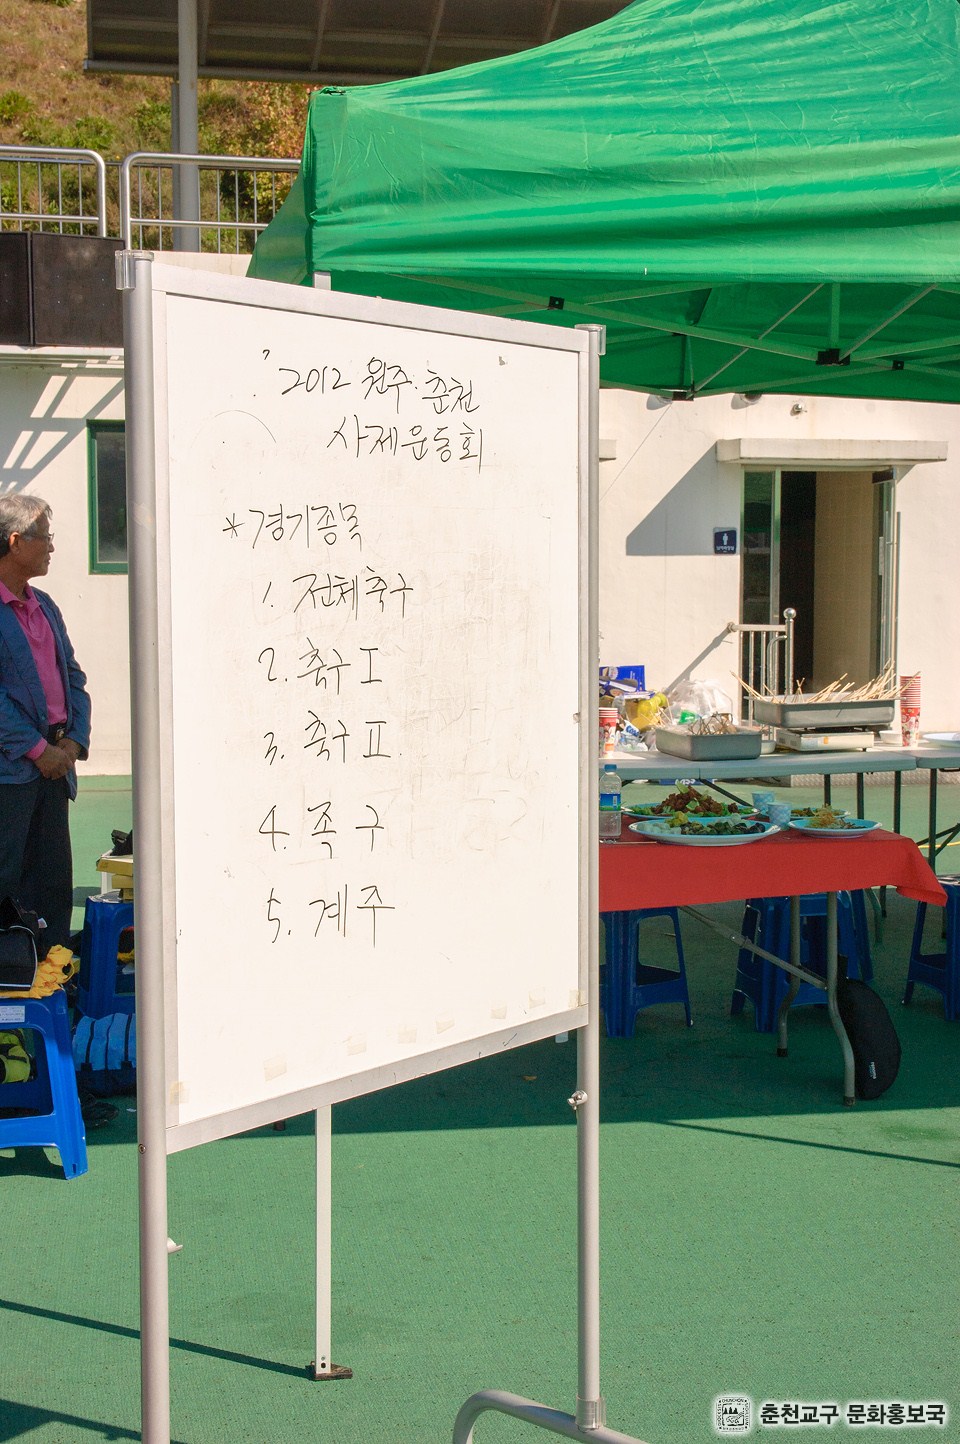 '2012 원주·춘천
사제운동회
*경기종목
1. 전체축구
2. 축구 I
3. 축구 II.
4. 족구
5. 계주
춘천교구 문화홍보국